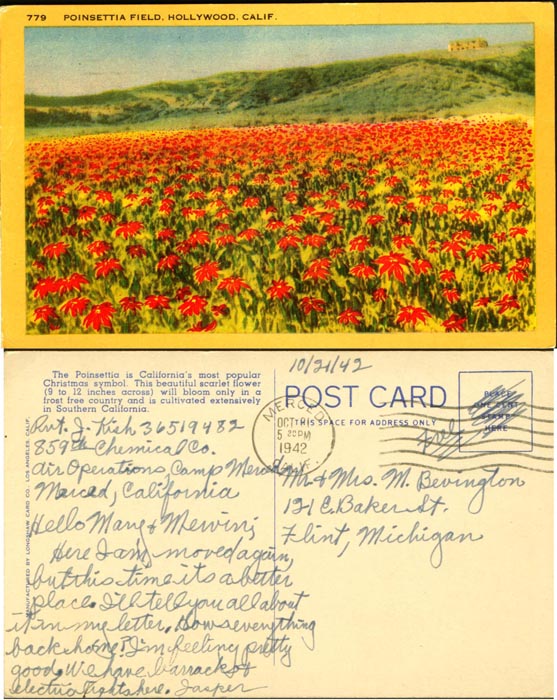 779 POINSETTIA FIELD, HOLLYWOOD, CALIF.
The Poinsettia is California's most popular
Christmas symbol. This beautiful scarlet flower
(9 to 12 inches across) will bloom only in a
frost free country and is cultivated extensively
in Southern California.
MANUFACTURED BY LONGSHAW CARD CO., LOS ANGELES, CALIF.
10/21/42
POST CARD
THIS SPACE FOR ADDRESS ONLY
PLACE
ONE CENT
STAMP
HERE
Free
MERCED
OCT
5 PM
1942
Pvt. J. Kich 36519482
859th Chemical Co.
Air Operations, Camp Merced
Merced, California
Hello Mary & Mervin;
Here I am, moved again,
but this time its a better
place. I'll tell you all about
it in my letter. Hows everything
back home? I'm feeling pretty
good. We have barracks &
electric lights here. Jasper
Mr & Mrs. M. Bevington
121 E. Baker St.
Flint, Michigan